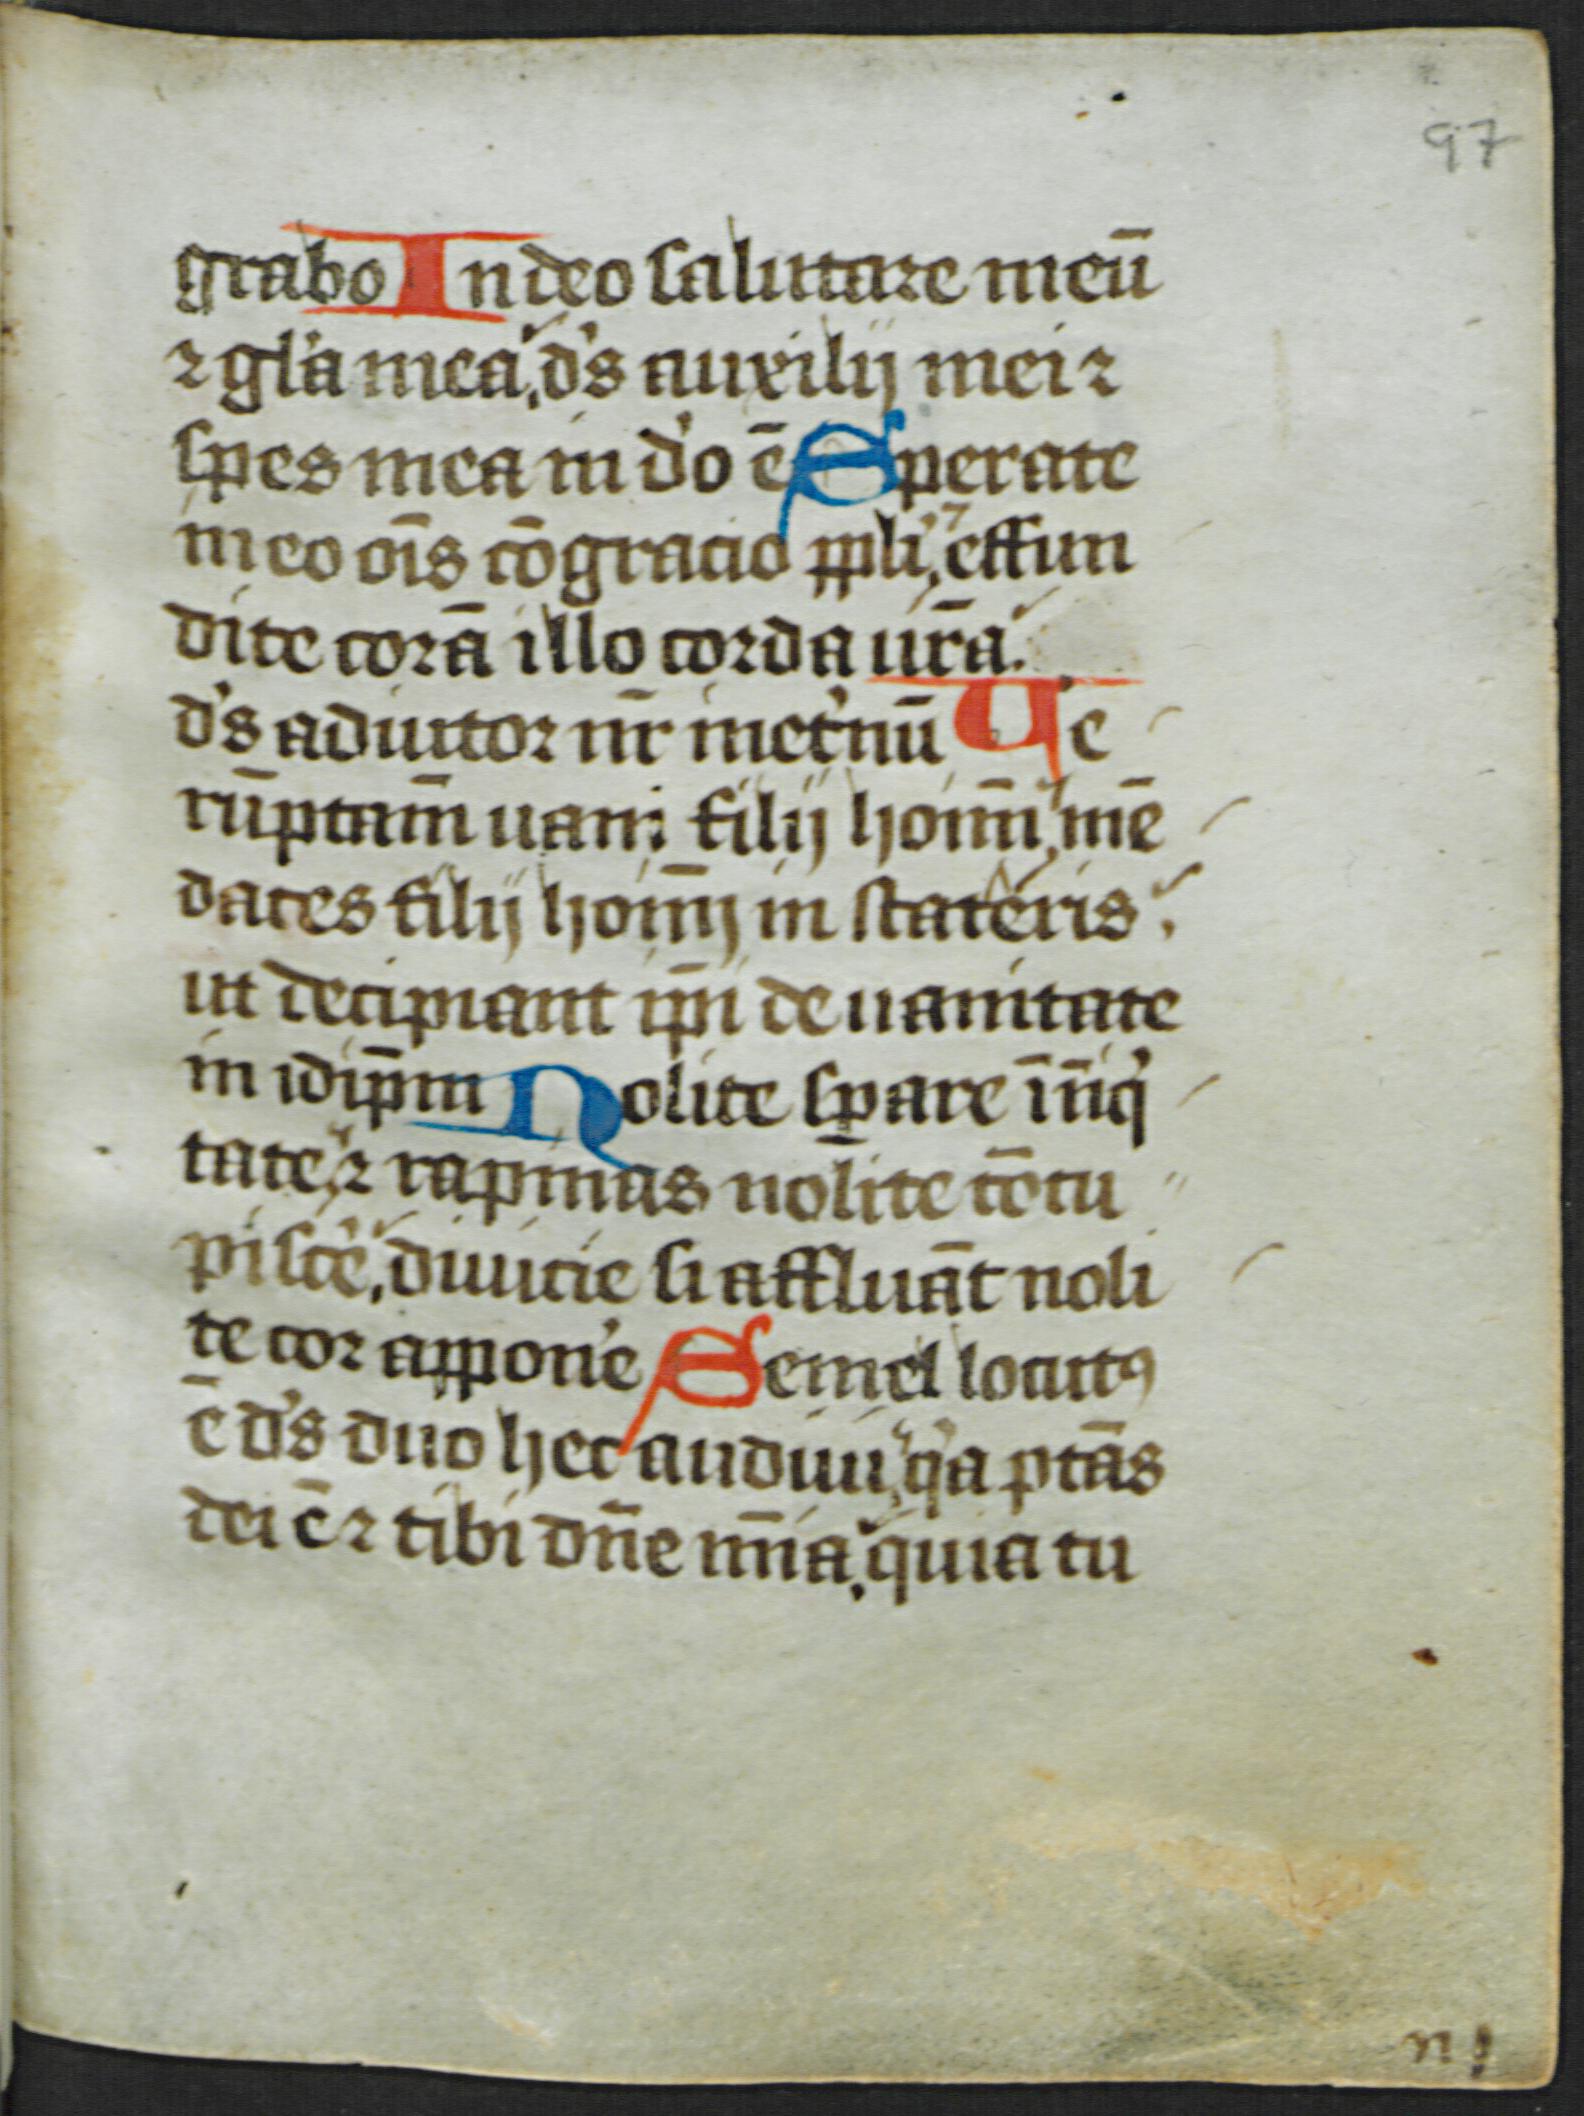 97
grabo In deo salutare meū
⁊ gl'a mea, d's auxilij mei ⁊
spes mea in d'o ē Sperate
in eo oīs cōgracio ppl'i, effun
dite corā illo corda ur̄a.
d's adiutor nr̄ inet'nū Ue
rūptam̄ uani filij homī, mē
daces filij homīj in stateris.
ut decipiant ip̄i de uanitate
in idip̄m Nolite sp̄are īniq'
tate, ⁊ rapinas nolite cōcu
pisc'e, diuicie si affluāt noli
te cor appon'e Semel locutꝰ
ē d's duo hec audiui, q'a ptās
dei ē ⁊ tibi dn̄e mīa, quia tu
n j